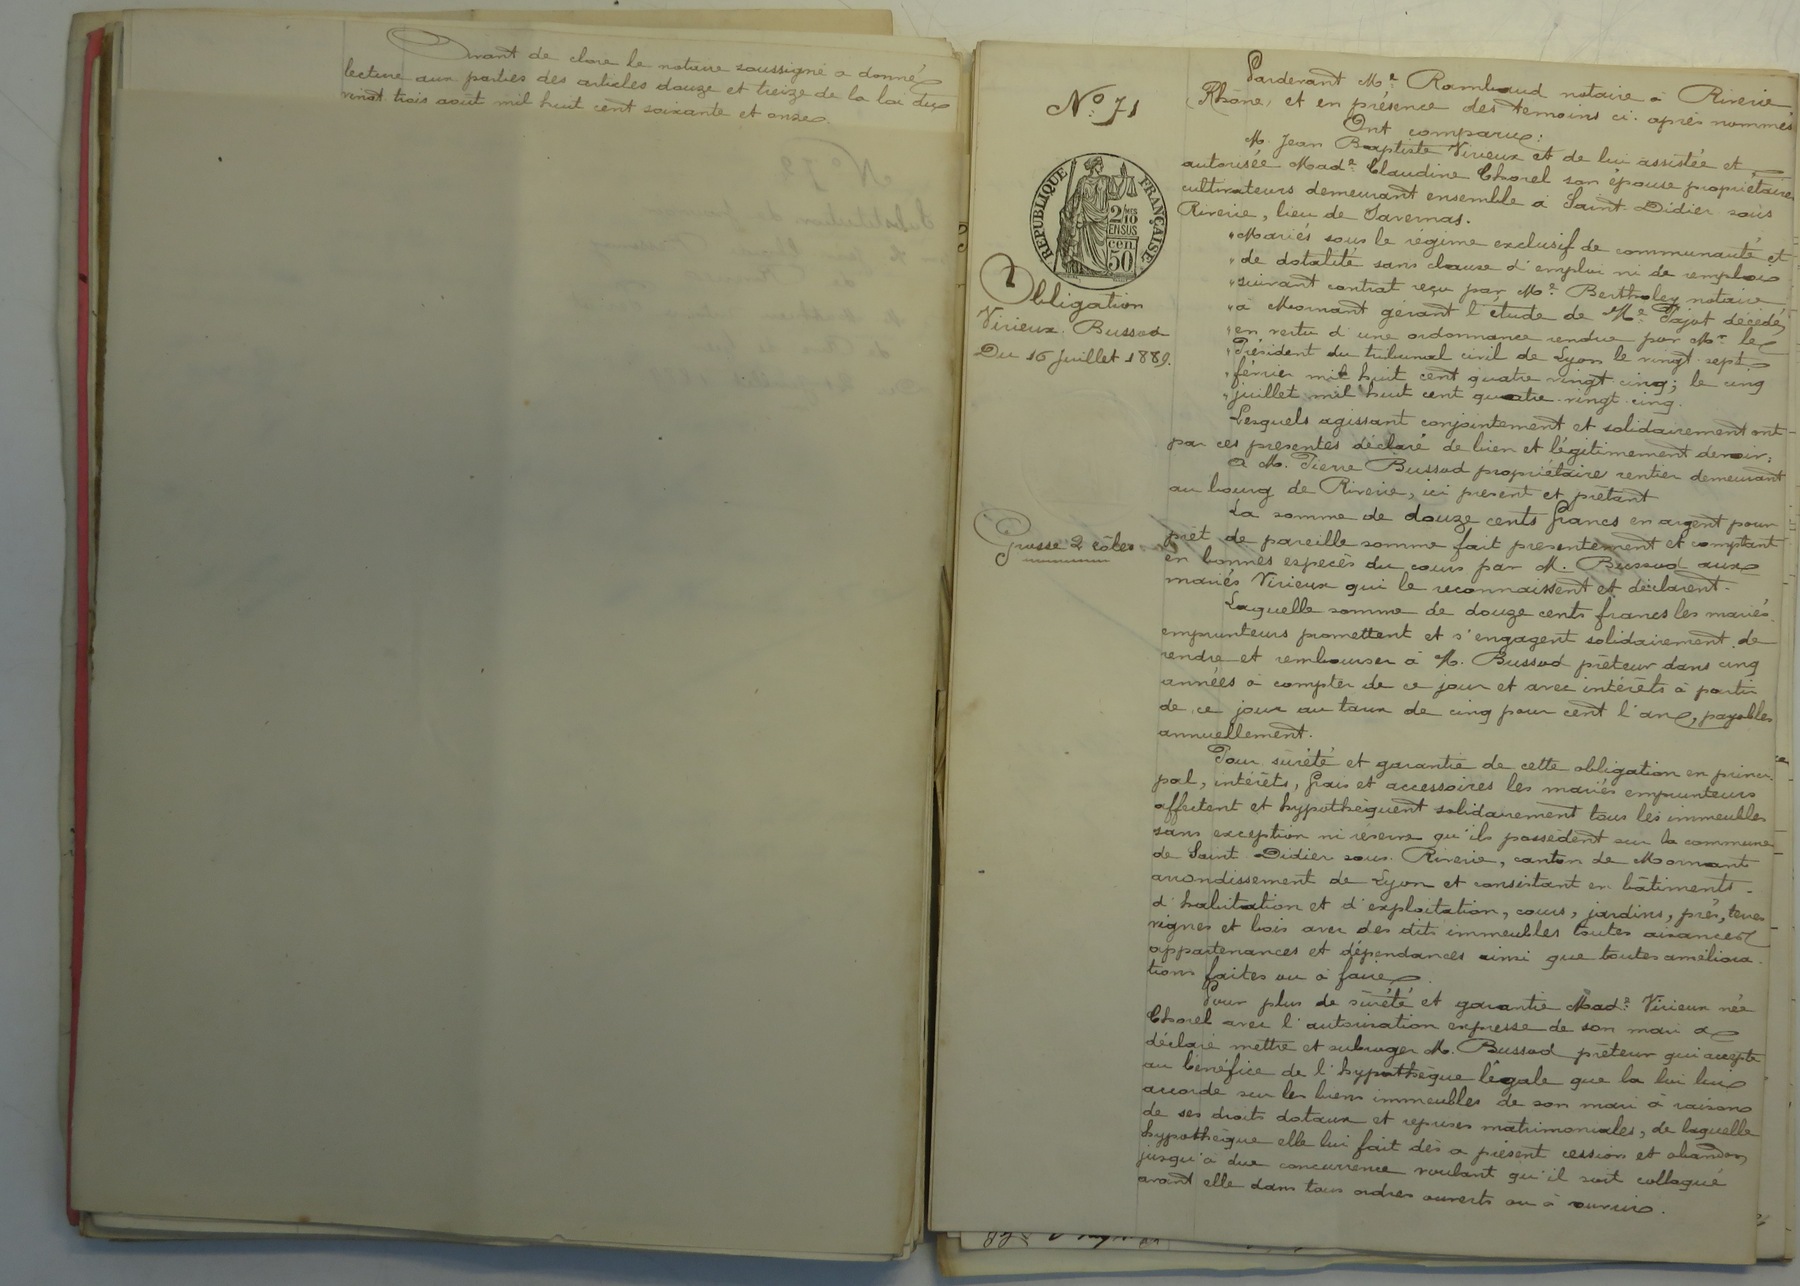 Avant de clore le notaire soussigné a donné
lecture aux parties des articles douze et treize de la loi du
vingt trois août mil huit cent soixante et onze.
N° 71
RÉPUBLIQUE FRANÇAISE
2/10 EN SUS
50 cen
Obligation
Virieux. Bussod
Du 16 juillet 1889.
Grosse 2 rôles
Pardevant Me Rambaud notaire à Riverie
(Rhône) et en présence des témoins ci-après nommés
Ont comparu:
M. Jean Baptiste Virieux et de lui assistée et
autorisée Made Claudine Chorel son épouse propriétaires
cultivateurs demeurant ensemble à Saint-Didier sous
Riverie, lieu de Javernas.
"Mariés sous le régime exclusif de communauté et
"de dotalité sans clause d'emploi ni de remploi
"suivant contrat reçu par Me Bertholey notaire
"à Mornant gérant l'étude de Me Pajot décédé,
"en vertu d'une ordonnance rendue par Mr le
"Président du tribunal civil de Lyon le vingt sept
"février mil huit cent quatre vingt cinq; le cinq
"juillet mil huit cent quatre-vingt-cinq.
Lesquels agissant conjointement et solidairement ont
par ces présentes déclaré de bien et légitimement devoir:
A M. Pierre Bussod propriétaire rentier demeurant
au bourg de Riverie, ici présent et prêtant
La somme de douze cents francs en argent pour
prêt de pareille somme fait présentement et comptant
en bonnes espèces du cours par M. Bussod aux
mariés Virieux qui le reconnaissent et déclarent.
Laquelle somme de douze cents francs les mariés
emprunteurs promettent et s'engagent solidairement de
rendre et rembourser à M. Bussod prêteur dans cinq
années à compter de ce jour et avec intérêts à partir
de ce jour au taux de cinq pour cent l'an, payables
annuellement.
Pour sûreté et garantie de cette obligation en princi-
pal, intérêts, frais et accessoires les mariés emprunteurs
affectent et hypothèquent solidairement tous les immeubles
sans exception ni réserve qu'ils possèdent sur la commune
de Saint-Didier sous Riverie, canton de Mornant
arrondissement de Lyon et consistant en bâtiments
d'habitation et d'exploitation, cours, jardins, prés, terres
vignes et bois avec des dits immeubles toutes aisances
appartenances et dépendances ainsi que toutes améliora-
tions faites ou à faire.
Pour plus de sûreté et garantie Made Virieux née
Chorel avec l'autorisation expresse de son mari a
déclaré mettre et subroger M. Bussod prêteur qui accepte
au bénéfice de l'hypothèque légale que la loi lui
accorde sur les biens immeubles de son mari à raison
de ses droits dotaux et reprises matrimoniales, de laquelle
hypothèque elle lui fait dès à présent cession et abandon
jusqu'à due concurrence voulant qu'il soit colloqué
avant elle dans tous ordres ouverts ou à ouvrir.